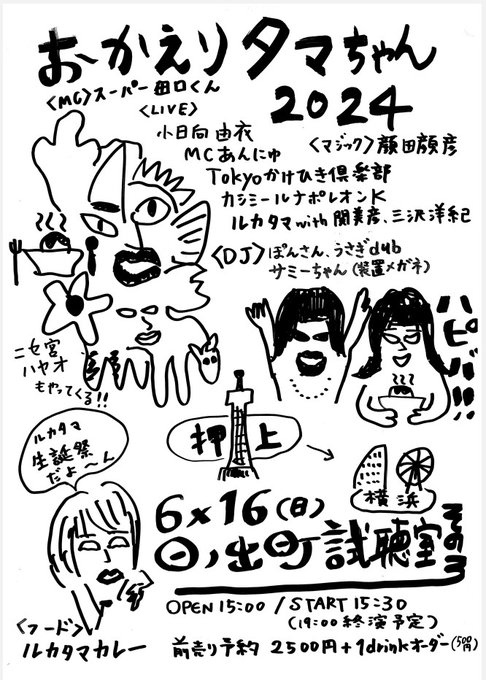 おかえりタマちゃん
2024
〈MC〉スーパー田口くん
〈LIVE〉
小日向由衣
MCあんにゅ
〈マジック〉顔田顔彦
Tokyoかけひき倶楽部
カシミールナポレオンK
ルカタマwith関美彦、三沢洋紀
〈DJ〉ぽんさん、うさぎdub
サミーちゃん(装置メガネ)
ニセ宮
ハヤオ
もやってくる!!
ハピバ!!!
押上
横浜
ルカタマ
生誕祭
だよ〜ん
6×16(日)
日ノ出町試聴室その3
OPEN 15:00 / START 15:30
(19:00 終演予定)
〈フード〉
ルカタマカレー
前売り予約 2500円+1drinkオーダー(500円)